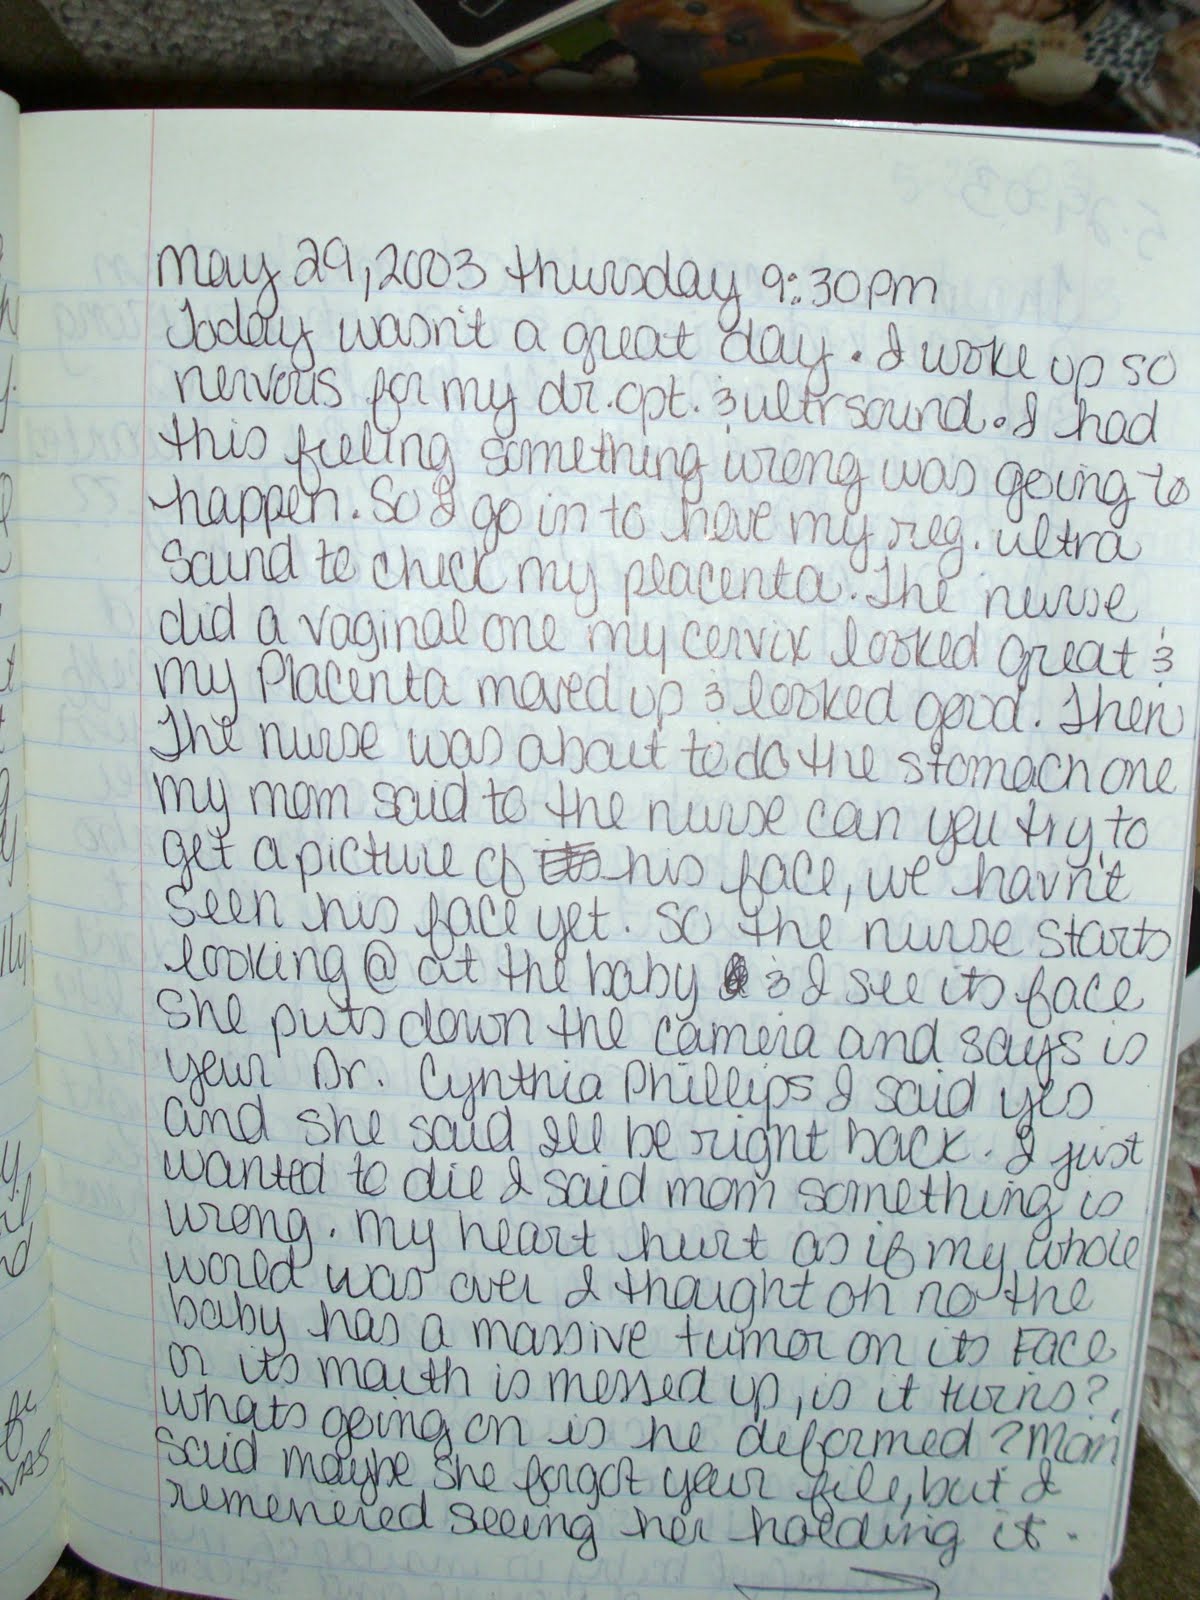 May 29, 2003 thursday 9:30pm
Today wasn't a great day. I woke up so
nervous for my dr. opt. & ultrsound. I had
this feeling something wrong was going to
happen. So I go in to have my reg. ultra
sound to check my placenta. The nurse
did a vaginal one my cervix looked great &
my Placenta moved up & looked good. Then
The nurse was about to do the stomach one
my mom said to the nurse can you try to
get a picture of his face, we havn't
seen his face yet. So the nurse starts
looking @ at the baby & I see its face
she puts down the camera and says is
your Dr. Cynthia Phillips I said yes
and she said Ill be right back. I just
wanted to die I said mom something is
wrong. My heart hurt as if my whole
world was over I thought oh no the
baby has a massive tumor on its Face
or its mouth is messed up, is it twins?
whats going on is he deformed? Mom
said maybe she forgot your file, but I
remenered seeing her holding it.